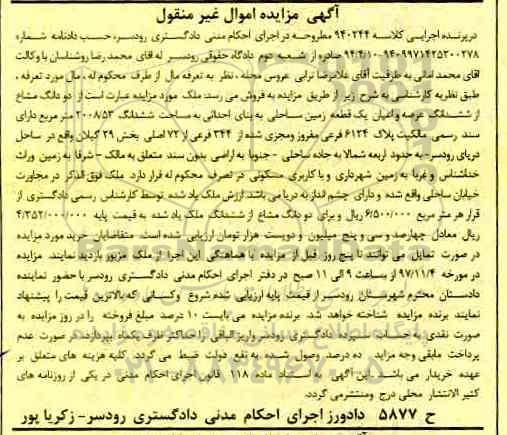 آگهی مزایده اموال غیر منقول
درپرنده اجرایی کلاسه ۹۴۰۲۴۴ مطروحه در اجرای احکام مدنی دادگستری رودسر، حسب دادنامه شماره
۹۴۰۹۹۷۱۴۲۵۳۰۰۲۷۸-۹۴/۴/۱۰ صادره از شعبه دوم دادگاه حقوقی رودسر له اقای محمد رضا روشناس با وکالت
اقای محمد امانی به طرفیت اقای غلامرضا ترابی عروس محله، نظر به تعرفه مال از طرف محکوم له، مال مورد تعرفه،
طبق نظریه کارشناس به شرح زیر از طریق مزایده به فروش می رسد: ملک مورد مزایده عبارت است از دو دانگ مشاع
از ششدانگ عرصه و اعیان یک قطعه زمین ساحلی به بنای احداثی به مساحت ششدانگ ۲۰۰۸/۵۳ متر مربع دارای
سند رسمی مالکیت پلاک ۶۱۲۴ فرعی مفروز ومجزی شده از ۳۴۴ فرعی از ۷۲ اصلی بخش ۲۹ گیلان واقع در ساحل
دریای رودسر- به حدود اربعه شمالا به جاده ساحلی - جنوبا به اراضی بدون سند متعلق به مالک - شرقا به زمین وراث
خداشناس و غربا به زمین شهرداری و با کاربری مسکونی در تصرف محکوم له قرار دارد ملک فوق الذکر در مجاورت
خیابان ساحلی واقع شده و دارای چشم انداز به دریا می باشد. ارزش ملک یاد شده توسط کارشناس رسمی دادگستری از
قرار هر متر مربع ۶/۵۰۰/۰۰۰ ریال و برای دو دانگ مشاع از ششدانگ ملک یاد شده به قیمت پایه ۴/۳۵۲/۰۰۰/۰۰۰
ریال معادل چهارصد و سی و پنج میلیون و دویست هزار تومان ارزیابی شده است. متقاضیان خرید مورد مزایده
در صورت تمایل می توانند تا پنج روز قبل از مزایده با هماهنگی این اجرا از ملک مزبور بازدید نمایند. مزایده
در مورخه ۹۷/۱۱/۴ از ساعت ۹ الی ۱۱ صبح در دفتر اجرای احکام مدنی دادگستری رودسر با حضور نماینده
دادستان محترم شهرستان رودسر از قیمت پایه ارزیابی شده شروع وکسانی که بالاترین قیمت را پیشنهاد
نمایند برنده مزایده شناخته خواهد شد. برنده مزایده می بایست ۱۰ درصد مبلغ فروخته را در روز مزایده به
صورت نقدی به حساب سپرده دادگستری رودسر واریز الباقی را حداکثر ظرف یکماه بپردازد. در صورت عدم
پرداخت مابقی وجه مزایده ده درصد وصول شده به نفع دولت ضبط می گردد. کلیه هزینه های متعلق بر
عهده خریدار می باشد. این آگهی به استناد ماده ۱۱۸ قانون اجرای احکام مدنی در یکی از روزنامه های
کثیر الانتشار محلی درج ومنتشر می گردد.
ح ۵۸۷۷ دادورز اجرای احکام مدنی دادگستری رودسر- زکریا پور